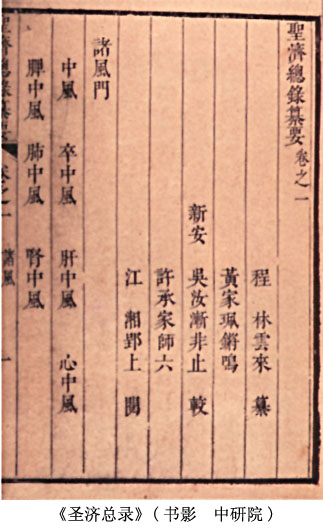 聖濟總錄纂要 卷之一
程 林雲來 纂
黃家珮鏘鳴
新安 吳汝漸非止 較
許承家師六
江 湘郢上 閱
諸風門
中風 卒中風 肝中風 心中風
脾中風 肺中風 腎中風
聖濟總錄纂要 卷之一 諸風 一
《圣济总录》（书影 中研院）